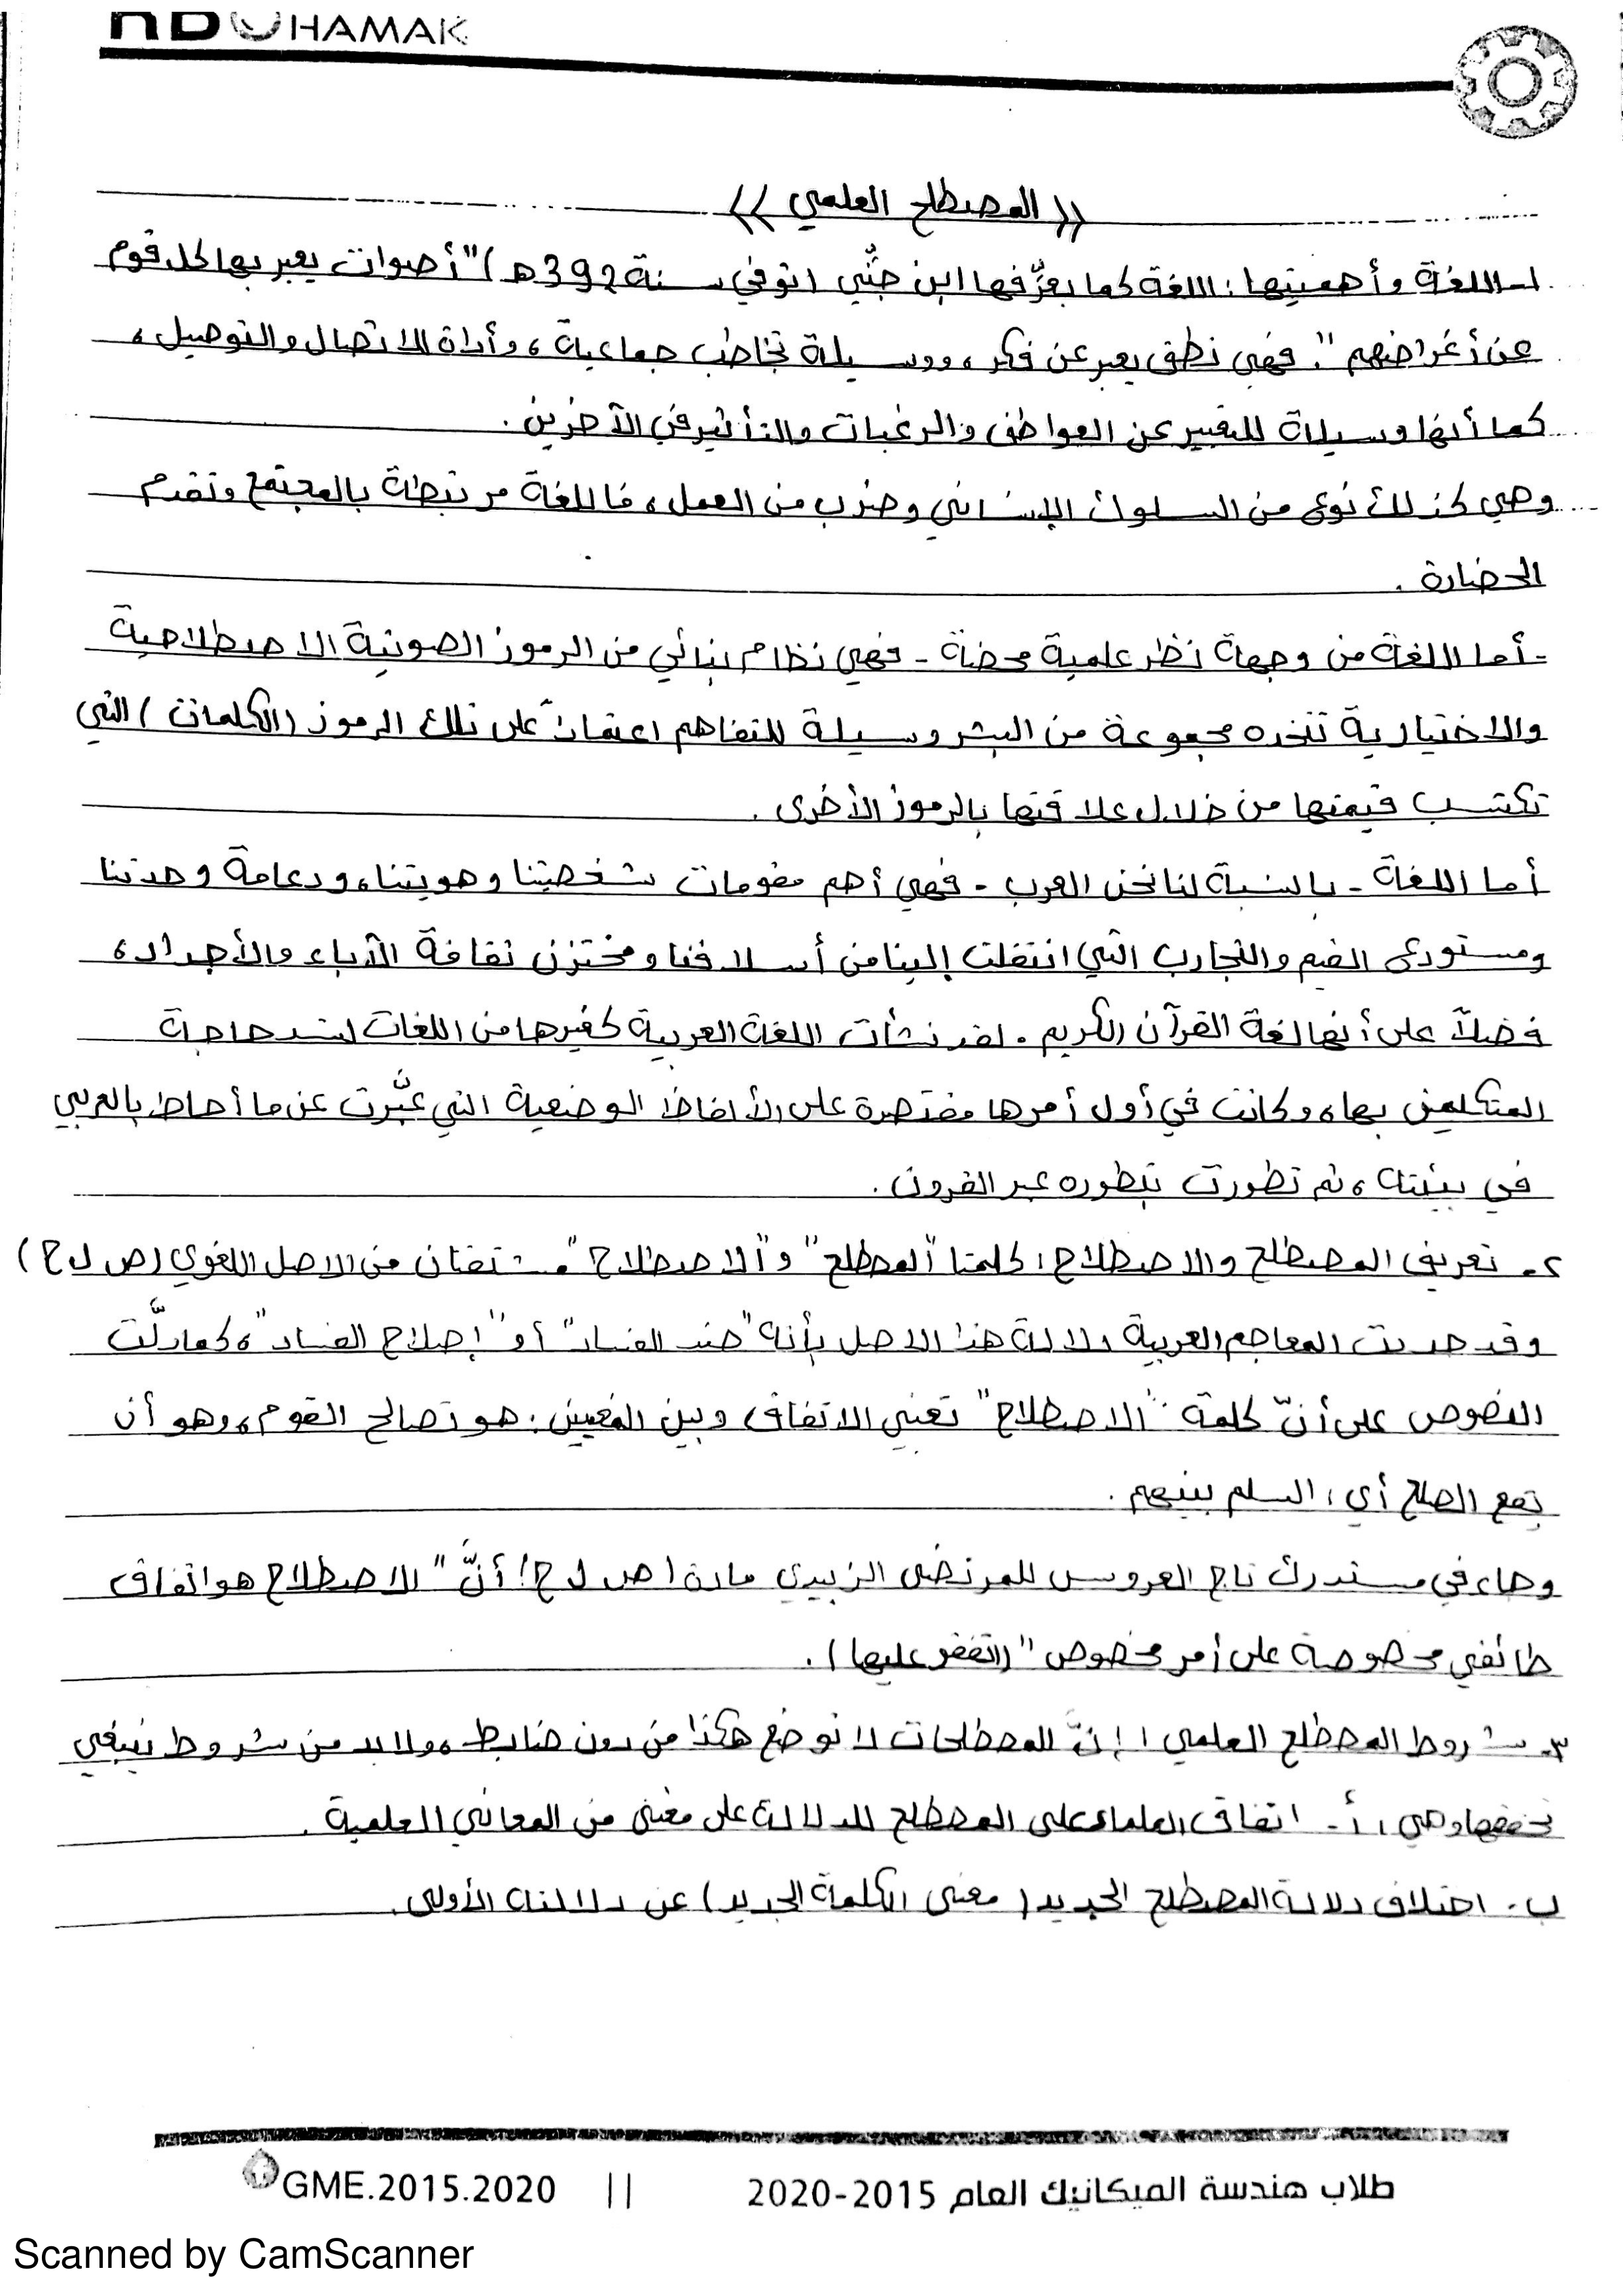 HAMAK
(( المصطلح العلمي ))
1- اللغة وأهميتها: اللغة كما يعرِّفها ابن جنّي (توفي سنة 392 ه) "أصوات يعبر بها كل قوم
عن أغراضهم". فهي نطق يعبر عن فكر، ووسيلة تخاطب جماعية، وأداة الاتصال والتوصيل،
كما أنها وسيلة للتعبير عن العواطف والرغبات والتأثير في الآخرين.
وهي كذلك نوع من السلوك الإنساني وضرب من العمل، فاللغة مرتبطة بالمجتمع وتقدم
الحضارة.
- أما اللغة من وجهة نظر علمية محضة - فهي نظام بنائي من الرموز الصوتية الاصطلاحية
والاختيارية تتخذه مجموعة من البشر وسيلة للتفاهم اعتماداً على تلك الرموز (الكلمات) التي
تكتسب قيمتها من خلال علاقتها بالرموز الأخرى.
أما اللغة - بالنسبة لنا نحن العرب - فهي أهم مقومات شخصيتنا وهويتنا، ودعامة وحدتنا
ومستودع القيم والتجارب التي انتقلت إلينا من أسلافنا ومختزن ثقافة الآباء والأجداد،
فضلاً على أنها لغة القرآن الكريم. لقد نشأت اللغة العربية كغيرها من اللغات لسد حاجة
المتكلمين بها، وكانت في أول أمرها مقتصرة على الألفاظ الوضعية التي عبَّرت عن ما أحاط بالعربي
في بيئته، ثم تطورت بتطوره عبر القرون.
٢- تعريف المصطلح والاصطلاح: كلمتا "المصطلح" و"الاصطلاح" مشتقتان من الاصل اللغوي (ص ل ح)
وقد حددت المعاجم العربية دلالة هذا الاصل بأنه "ضد الفساد" أو "إصلاح الفساد"، كما دلَّت
النصوص على أنّ كلمة "الاصطلاح" تعني الاتفاق وبين المعنيين: هو تصالح القوم، وهو أن
يقع الصلح أي: السلم بينهم.
وجاء في مستدرك تاج العروس للمرتضى الزبيدي مادة (ص ل ح) أنَّ "الاصطلاح هو اتفاق
طائفي مخصوصة على أمر مخصوص" .
٣- شروط المصطلح العلمي: إنّ المصطلحات لا توضع هكذا من دون ضابط، ولابد من شروط ينبغي
تحققها وهي: أ- اتفاق العلماء على المصطلح للدلالة على معنى من المعاني العلمية.
ب- اختلاف دلالة المصطلح الجديد (معنى الكلمة الجديد) عن دلالته الأولى.
GME.2015.2020 || طلاب هندسة الميكانيك العام 2015-2020
Scanned by CamScanner